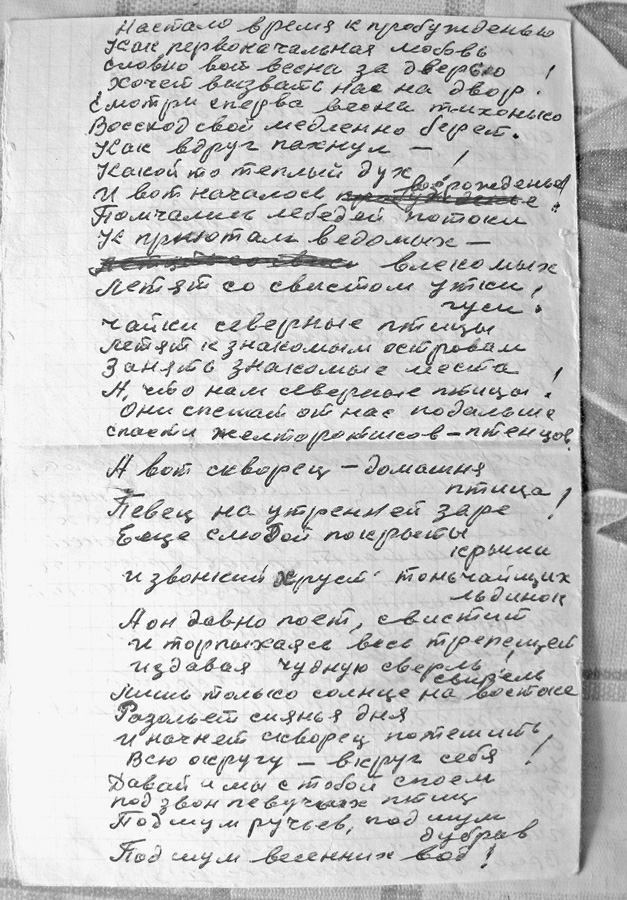 Настало время к пробужденью
Как первоначальная любовь
Словно вот весна за дверью
Хочет вызвать нас на двор!
Смотри сперва весна тихонько
Восход свой медленно берет.
Как вдруг пахнул — !
Какой то теплый дух
возрожденье
И вот началось пробужденье!
Помчались лебедей потоки
К приютам ведомых —
влекомых
Летят со свистом утки,
гуси!
чайки северные птицы
Летят к знакомым островам
Занять знакомые места
А, что нам северные птицы!
Они спешат от нас подальше
спасти желторотиков-птенцов
А вот скворец — домашня
птица!
Певец на утренней заре
Еще слюдой покрыты
крыши
и звонкий хруст тончайших
льдинок
А он давно поет, свистит
и торпыхаясь весь трепещет
издавая чудную сверль!
свирель
Лишь только солнце на востоке
Разольет сиянья дня
и начнет скворец потешить
Всю округу — вкруг себя!
Давай и мы с тобой споем
под звон певучих птиц
Под шум ручьев, под шум
дубрав
Под шум весенних вод!